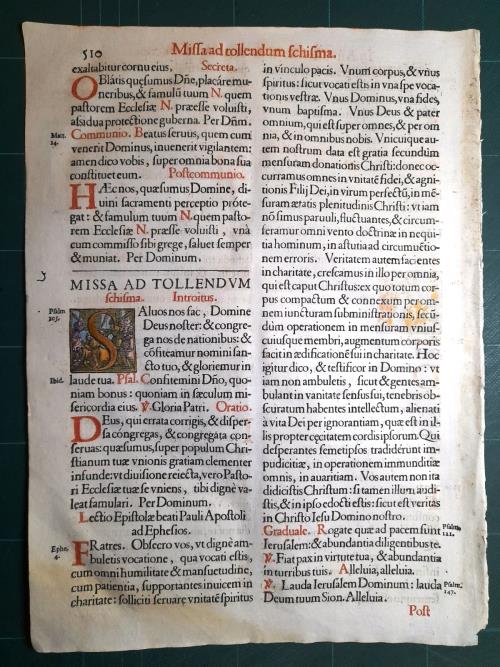 510
Missa ad tollendum schisma.
exaltabitur cornu eius, Secreta.
OBlátis quęsumus Dñe, placáre mu-
neribus, & famulũ tuum N. quem
pastorem Ecclesiæ N. præesse voluisti,
assidua protectione guberna. Per Dñm.
Matt. 24.
Communio. Beatus seruus, quem cum
venerit Dominus, inuenerit vigilantem:
amen dico vobis, super omnia bona sua
constituet eum. Postcommunio.
HÆc nos, quæsumus Domine, di-
uini sacramenti perceptio próte-
gat: & famulum tuum N. quem pasto-
rem Ecclesiæ N. præesse voluisti, vnà
cum commisso sibi grege, saluet semper
& muniat. Per Dominum.
MISSA AD TOLLENDVM
schisma. Introitus.
Psalm 105.
SAluos nos fac, Domine
Deus noster: & congre-
ga nos de nationibus: &
cõfiteamur nomini san-
cto tuo, & gloriemur in
Ibid.
laude tua. Psal. Confitemini Dño, quo-
niam bonus: quoniam in sæculum mi-
sericordia eius. ℣. Gloria Patri. Oratio.
DEus, qui errata corrigis, & disper-
sa cóngregas, & congregáta con-
seruas: quæsumus, super populum Chri-
stianum tuæ vnionis gratiam clementer
infunde: vt diuisione reiecta, vero Pasto-
ri Ecclesiæ tuæ se vniens, tibi dignè va-
leat famulari. Per Dominum.
Lectio Epistolæ beati Pauli Apostoli
ad Ephesios.
Ephe. 4.
FRatres. Obsecro vos, vt dignè am-
buletis vocatione, qua vocati estis,
cum omni humilitate & mansuetudine,
cum patientia, supportantes inuicem in
charitate: solliciti seruare vnitatẽ spiritus
in vinculo pacis. Vnum corpus, & vnus
spiritus: sicut vocati estis in vna spe voca-
tionis vestræ. Vnus Dominus, vna fides,
vnum baptisma. Vnus Deus & pater
omnium, qui est super omnes, & per om
nia, & in omnibus nobis. Vnicuique au-
tem nostrum data est gratia secundùm
mensuram donationis Christi: donec oc-
curramus omnes in vnitatẽ fidei, & agni-
tionis Filij Dei, in virum perfectũ, in mẽ-
suram ætatis plenitudinis Christi: vt iam
nõ simus paruuli, fluctuantes, & circum-
feramur omni vento doctrinæ in nequi-
tia hominum, in astutia ad circumuẽtio-
nem erroris. Veritatem autem facientes
in charitate, crescamus in illo per omnia,
qui est caput Christus: ex quo totum cor-
pus compactum & connexum per om-
nem iuncturam subministrationis, secũ-
dùm operationem in mensuram vnius-
cuiusque membri, augmentum corporis
facit in ædificationẽ sui in charitate. Hoc
igitur dico, & testificor in Domino: vt
iam non ambuletis, sicut & gentes am-
bulant in vanitate sensus sui, tenebris ob-
scuratum habentes intellectum, alienati
à vita Dei per ignorantiam, quæ est in il-
lis propter cęcitatem cordis ipsorum. Qui
desperantes semetipsos tradidérunt im-
pudicitiæ, in operationem immunditiæ
omnis, in auaritiam. Vos autem non ita
didicistis Christum: si tamen illum audi-
stis, & in ipso edocti estis: sicut est veritas
in Christo Iesu Domino nostro.
Psalm. 121.
Graduale. Rogate quæ ad pacem sunt
Ierusalem: & abundantia diligentibus te.
℣. Fiat pax in virtute tua, & abundantia
in turribus tuis. Alleluia, alleluia.
Psalm. 147.
℣. Lauda Ierusalem Dominum: lauda
Deum tuum Sion. Alleluia.
Post